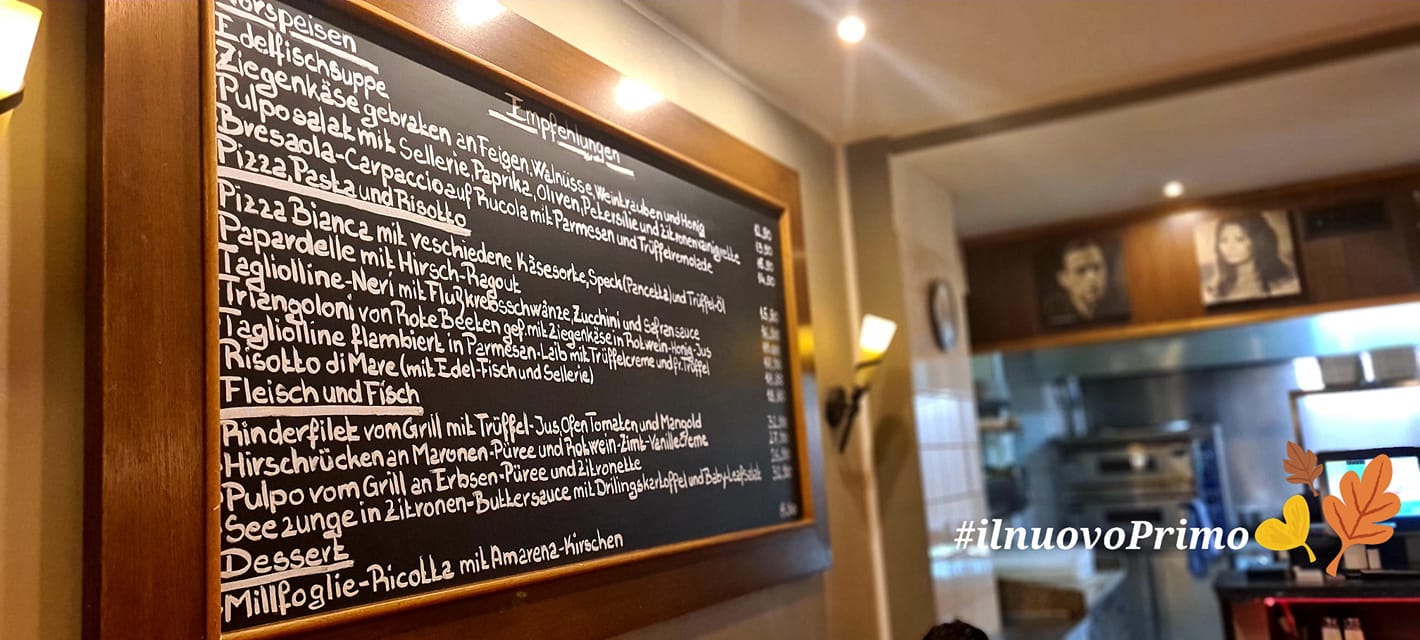 Vorspeisen
Empfehlungen
Edelfischsuppe
Ziegenkäse gebraten an Feigen, Walnüsse, Weintrauben und Honig
Pulposalat mit Sellerie, Paprika, Oliven, Petersilie und Zitronenvinigrette
Bresaola-Carpaccio auf Rucola mit Parmesan und Trüffelremolade
Pizza, Pasta und Risotto
Pizza Bianca mit veschiedene Käsesorte, Speck (Pancetta) und Trüffel-Öl
Papardelle mit Hirsch-Ragout
Tagliolline-Neri mit Flußkrebsschwänze, Zucchini und Safransauce
Triangoloni von Rote Beeten gef. mit Ziegenkäse in Rotwein-Honig-Jus
Tagliolline flambiert in Parmesan-Laib mit Trüffelcreme und fr. Trüffel
Risotto di Mare (mit Edel-Fisch und Sellerie)
Fleisch und Fisch
Rinderfilet vom Grill mit Trüffel-Jus, Ofen Tomaten und Mangold
Hirschrücken an Maronen-Püree und Rotwein-Zimt-Vanille
Pulpo vom Grill an Erbsen-Püree und Zitronette
Seezunge in Zitronen-Buttersauce mit Drilingskartoffel und Baby-Leafsalat
Dessert
Millfoglie-Ricotta mit Amarena-Kirschen
#ilnuovoPrimo